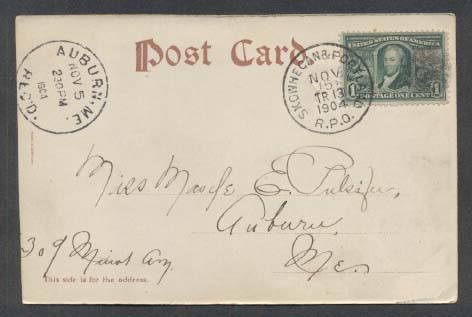 Post Card
AUBURN, ME.
NOV 5
230PM
1904
REC'D.
SKOWHEGAN & PORTLAND
NOV
TR 13
1904
R.P.O.
UNITED STATES OF AMERICA
1 POSTAGE ONE CENT 1
Miss E. Pulsifer,
Auburn,
Me.
309 Minot Av.
This side is for the address.